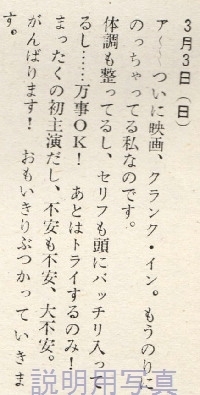 3月3日（日）
ア〜〜ついに映画、クランク・イン。もうのりに
のっちゃってる私なのです。
体調も整ってるし、セリフも頭にバッチリ入って
るし……万事OK！　あとはトライするのみ！
まったくの初主演だし、不安も不安、大不安。
がんばります！　おもいきりぶつかっていきま
す。
説明用写真